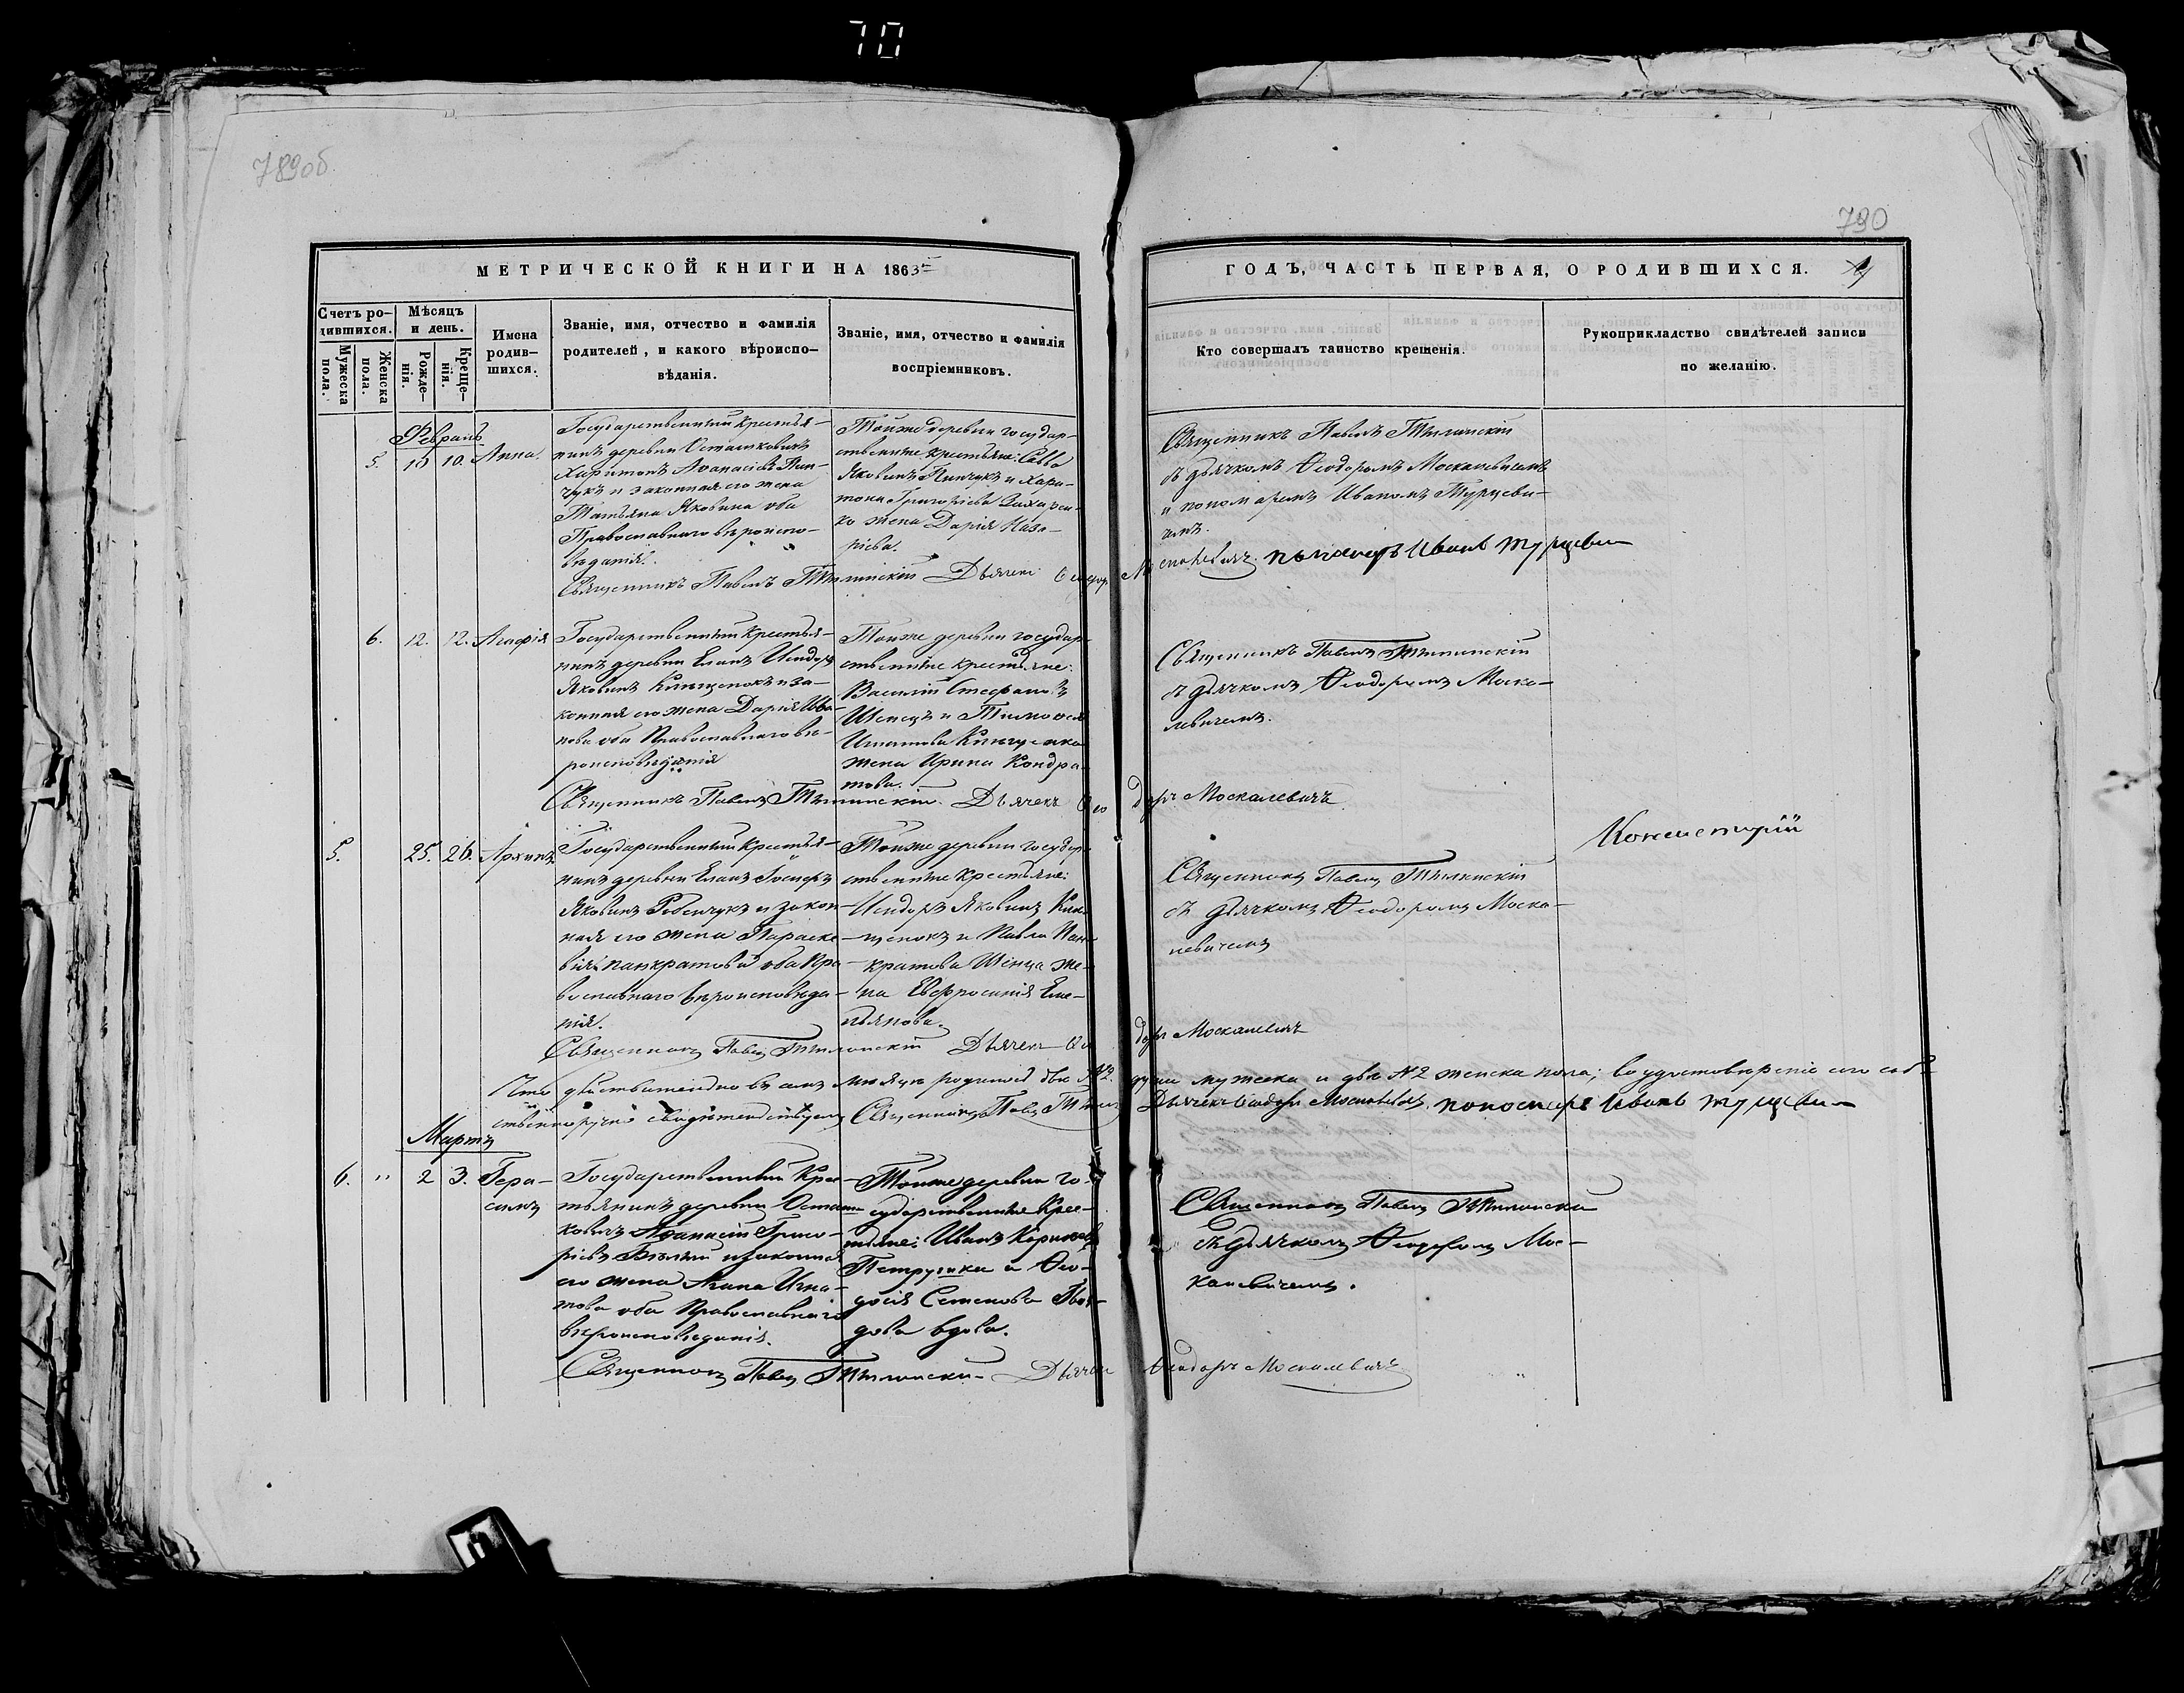 70
789об
790
МЕТРИЧЕСКОЙ КНИГИ НА 1863
ГОДЪ, ЧАСТЬ ПЕРВАЯ, О РОДИВШИХСЯ.
Счетъ ро-
дившихся.
Мужеска
пола.
Женска
пола.
Мѣсяцъ
и день.
Рожде-
нія.
Креще-
нія.
Имена
родив-
шихся.
Званіе, имя, отчество и фамилія
родителей, и какого вѣроиспо-
вѣданія.
Званіе, имя, отчество и фамилія
воспріемниковъ.
Кто совершалъ таинство крещенія.
Рукоприкладство свидѣтелей записи
по желанію.
Февраль
5. 10 10. Анна.
Государственный крестья-
нинъ деревни Осташковичъ
Харитонъ Аѳанасіевъ Пин-
чукъ и законная его жена
Татьяна Яковлева оба
Православнаго вѣроиспо-
вѣданія.
Тойже деревни государ-
ственные крестьяне: Савва
Яковлевъ Пинчукъ и Хари-
тона Григоріева Захарен-
ко жена Дарія Наза-
ріева.
Священникъ Павелъ
съ дьячкомъ Ѳеодоромъ Москалевичемъ
и пономаремъ Иваномъ Турцеви-
чемъ.
Священникъ Павелъ Дьячекъ Ѳеодоръ Москалевичъ. пономарь Иванъ Турцевич
6. 12. 12. Агафія
Государственный крестья-
нинъ деревни Еланъ Исидоръ
Яковлевъ и за-
конная его жена Дарія Ива-
нова оба Православнаго вѣ-
роисповѣданія
Тойже деревни государ-
ственные крестьяне:
Василій Стефановъ
Шевецъ и Тимоѳея
Игнатова
жена Ирина Кондра-
това.
Священникъ Павелъ
съ дьячкомъ Ѳеодоромъ Моска-
левичемъ.
Священникъ Павелъ Дьячекъ Ѳеодоръ Москалевичъ
5. 25. 26. Архипъ
Государственный крестья-
нинъ деревни Еланъ Іосифъ
Яковлевъ и закон-
ная его жена Параске-
вія Панкратова оба Пра-
вославнаго вѣроисповѣда-
нія.
Тойже деревни государ-
ственные крестьяне:
Исидоръ Яковлевъ
и Павла Пан-
кратова Шевца же-
на Евфросинія Еме-
льянова.
Священникъ Павелъ
съ дьячкомъ Ѳеодоромъ Моска-
левичемъ
Священникъ Павелъ Дьячекъ Ѳеодоръ Москалевичъ
Что дѣйствительно въ семъ мѣсяцѣ родилось двѣ №2. души мужеска и двѣ №2 женска пола; во удостовѣреніе сего соб-
ственноручно свидѣтельствуемъ Священникъ Павелъ Дьячекъ Ѳеодоръ Москалевичъ. пономарь Иванъ Турцевич
Мартъ
6. " 2 3. Гера-
симъ
Государственный Крес-
тьянинъ деревни Осташ-
ковичъ Аѳанасій Григо-
ріевъ и законная
его жена Анна Игна-
това оба Православнаго
вѣроисповѣданія.
Тойже деревни го-
сударственные Крес-
тьяне: Иванъ
и Ѳео-
досія Семенова
вдова.
Священникъ Павелъ
съ дьячкомъ Ѳеодоромъ Мос-
калевичемъ.
Священникъ Павелъ Дьячекъ Ѳеодоръ Москалевичъ